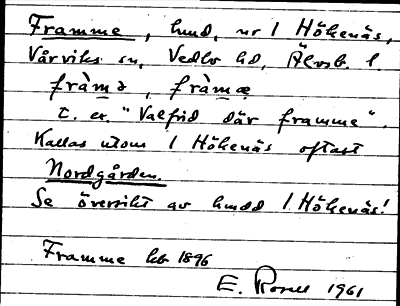 Framme, hmd, nr 1 Hökenäs,
Vårviks sn, Vedbo hd, Älvsb. l.
fràmə, fràmæ
t. ex. "Valfrid där framme".
Kallas utom 1 Hökenäs oftast
Nordgården.
Se översikt av hmdd 1 Hökenäs!
Framme hb 1896
E. Rosell 1961